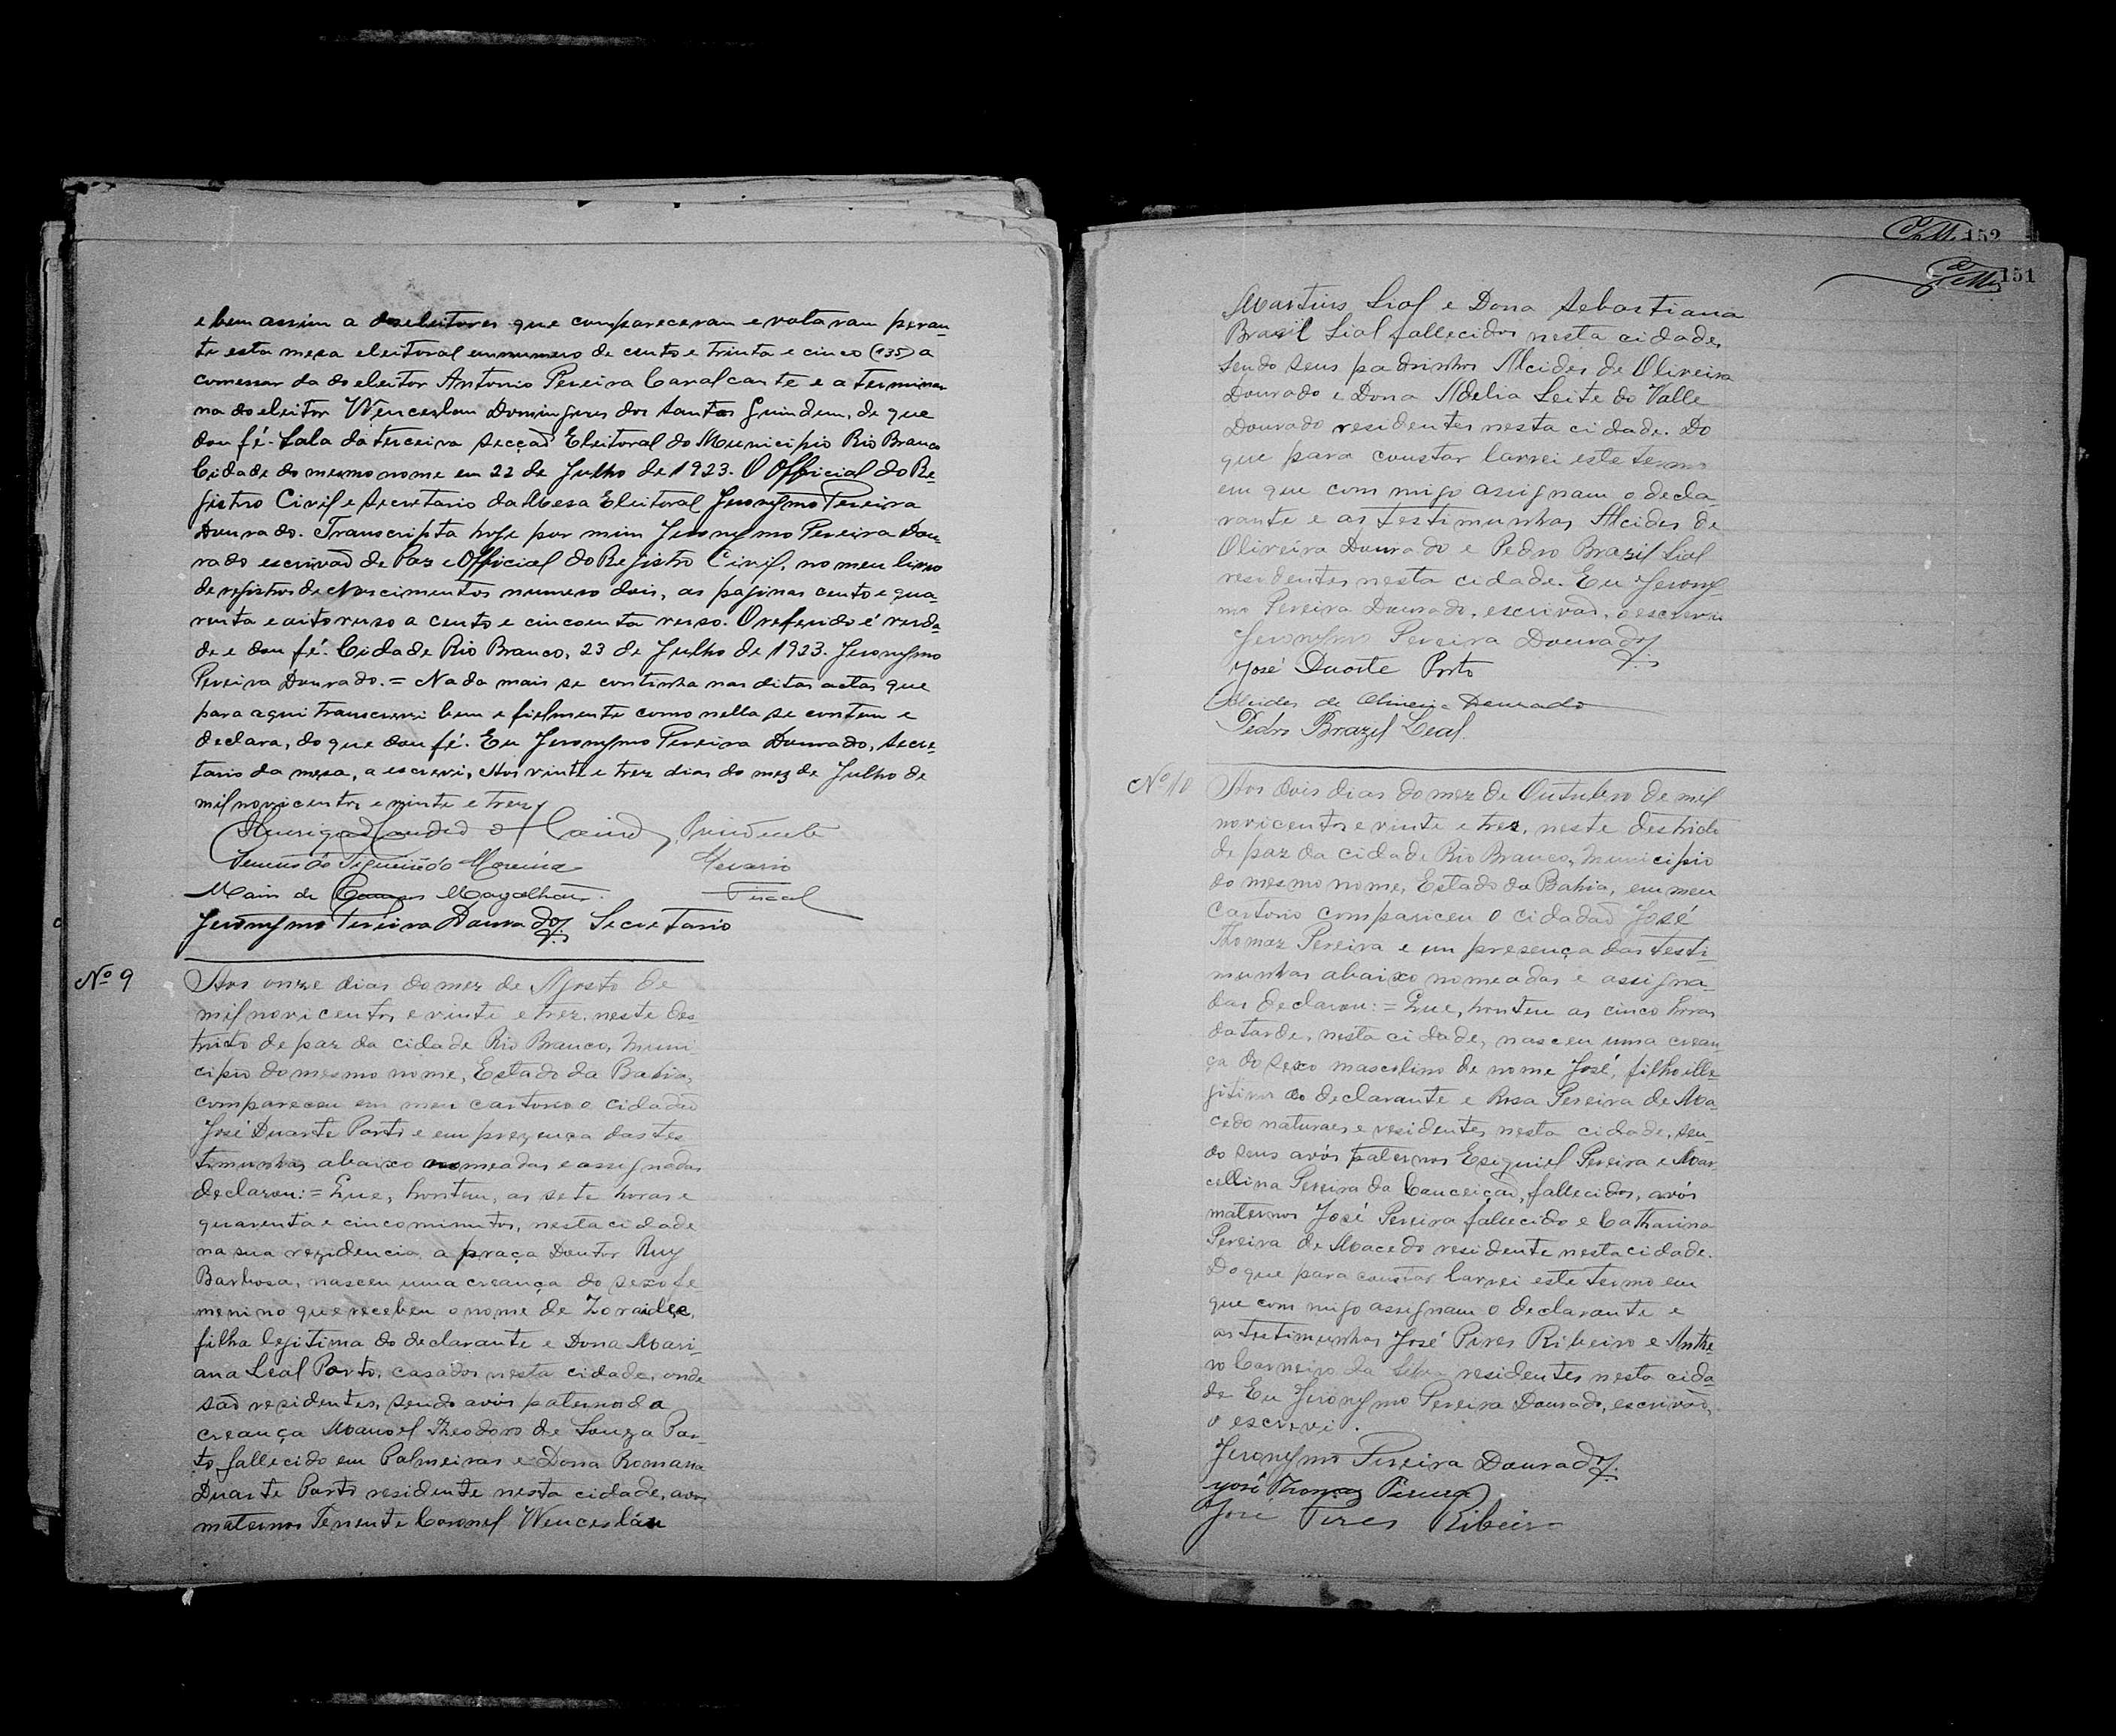 e bem assim a dos eleitores que compareceram e votaram peran-
te esta mesa eleitoral em numero de cento e trinta e cinco (135) a
comessar da do eleitor Antonio Pereira Cavalcante e a terminar
na do eleitor Wenceslau Domingues dos Santos Guindem, de que
dou fé. Sala da terceira secção Eleitoral do Municipio Rio Branco
Cidade do mesmo nome em 22 de Julho de 1923. O Official do Re-
gistro Civil e Secretario da Mesa Eleitoral Jeronymo Pereira
Dourado. Transcripta hoje por mim Jeronymo Pereira Dou-
rado escrivão de Paz e Official do Registro Civil, no meu livro
de registros de Nascimentos numero dois, as paginas cento e qua-
renta e oito verso a cento e cincoenta verso. O referido é verda-
de e dou fé. Cidade Rio Branco, 23 de Julho de 1923. Jeronymo
Pereira Dourado. = Nada mais se continha nas ditas actas que
para aqui transcrevi bem e fielmente como nella se contem e
declara, do que dou fé. Eu Jeronymo Pereira Dourado, Secre-
tario da mesa, a escrevi, Aos vinte e trez dias do mez de Julho de
mil novicentos e vinte e trez
Presidente
Moreira Mesario
Mario de Magalhães Fiscal
Jeronymo Pereira Dourado Secretario
Nº 9
Aos onze dias do mez de Agosto de
mil novicentos e vinte e trez, neste des-
tricto de paz da cidade Rio Branco, Muni-
cipio do mesmo nome, Estado da Bahia,
compareceu em meu cartorio o cidadão
José Duarte Porto e em prezença das tes-
timunhas abaixo nomeadas e assignadas
declarou: = Que, hontem, as sete horas e
quarenta e cinco minutos, nesta cidade
na sua rezidencia a praça Doutor Ruy
Barbosa, nasceu uma creança do sexo fe
menino que recebeu o nome de Zoraide,
filha legitima do declarante e Dona Mari-
ana Leal Porto, casados nesta cidade, onde
são residentes, sendo avós paternos da
creança Manoel Theodoro de Souza Por-
to fallecido em Palmeiras e Dona Romana
Duarte Porto residente nesta cidade, avós
maternos Tenente Coronel Wenceslau
152
151
Martins Lial e Dona Sebastiana
Brazil Lial fallecidos nesta cidade,
sendo seus padrinhos Alcides de Oliveira
Dourado e Dona Adelia Leite do Valle
Dourado residentes nesta cidade. Do
que para constar lavrei este termo
em que com migo assignam o decla-
rante e as testimunhas Alcides de
Oliveira Dourado e Pedro Brazil Lial
residentes nesta cidade. Eu Jerony-
mo Pereira Dourado, escrivão, o escrevi
Jeronymo Pereira Dourado
José Duarte Porto
Alcides de Oliveira Dourado
Pedro Brazil Leal.
Nº 10
Aos dois dias do mez de Outubro de mil
novicentos e vinte e trez, neste destricto
de paz da cidade Rio Branco, Municipio
do mesmo nome, Estado da Bahia, em meu
Cartorio compariceu o cidadão José
Thomaz Pereira e em presença das testi-
munhas abaixo nomeadas e assigna-
das declarou: = Que, hontem as cinco horas
da tarde, nesta cidade, nasceu uma crean-
ça do sexo masculino de nome José, filho ille-
gitimo do declarante e Rosa Pereira de Ma-
cedo naturaes e residentes nesta cidade, sen-
do seus avós paternos Esiquiel Pereira e Mar-
cellina Pereira da Conceição, fallecidos, avós
maternos José Pereira fallecido e Catharina
Pereira de Macedo residente nesta cidade.
Do que para constar lavrei este termo em
que com migo assignam o declarante e
as testimunhas José Pires Ribeiro e Anthe-
ro Carneiro da Silva residentes nesta cida-
de Eu Jeronymo Pereira Dourado, escrivão,
o escrevi.
Jeronymo Pereira Dourado
José Thomaz Pereira
José Pires Ribeiro